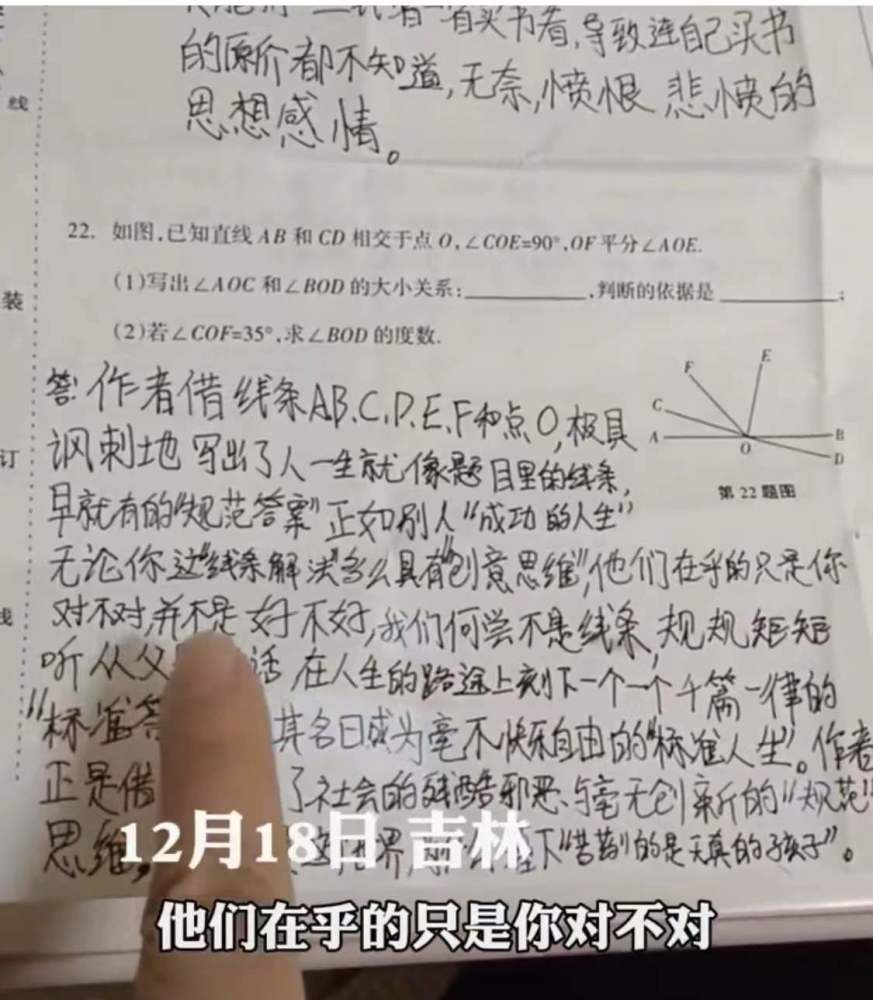 看买书看,导致连自己买书
的原价都不知道,无奈,愤恨 悲愤的
思想感情。
线
22. 如图,已知直线 AB 和 CD 相交于点 O,∠COE=90°,OF 平分∠AOE.
(1)写出∠AOC 和∠BOD 的大小关系:____________,判断的依据是____________;
装
(2)若∠COF=35°,求∠BOD 的度数.
E
F
C
A
B
O
D
第 22 题图
答:作者借线条AB、C、D、E、F和点O,极具
讽刺地 写出了人一生就像题目里的线条,
订
早就有的"规范答案"正如别人"成功的人生"
无论你这"线条解法"多么具有"创意思维",他们在乎的只是你
对不对,并不是好不好,我们何尝不是线条,规规矩矩
线
听从父 话 在人生的路途上刻下一个一个千篇一律的
"标准答 其名曰成为毫不快乐自由的"标准人生"。作者
正是借 了社会的残酷邪恶与毫无创新的"规范"
思维, 这 世界, 下"苦的是天真的孩子"。
12月18日 吉林
他们在乎的只是你对不对